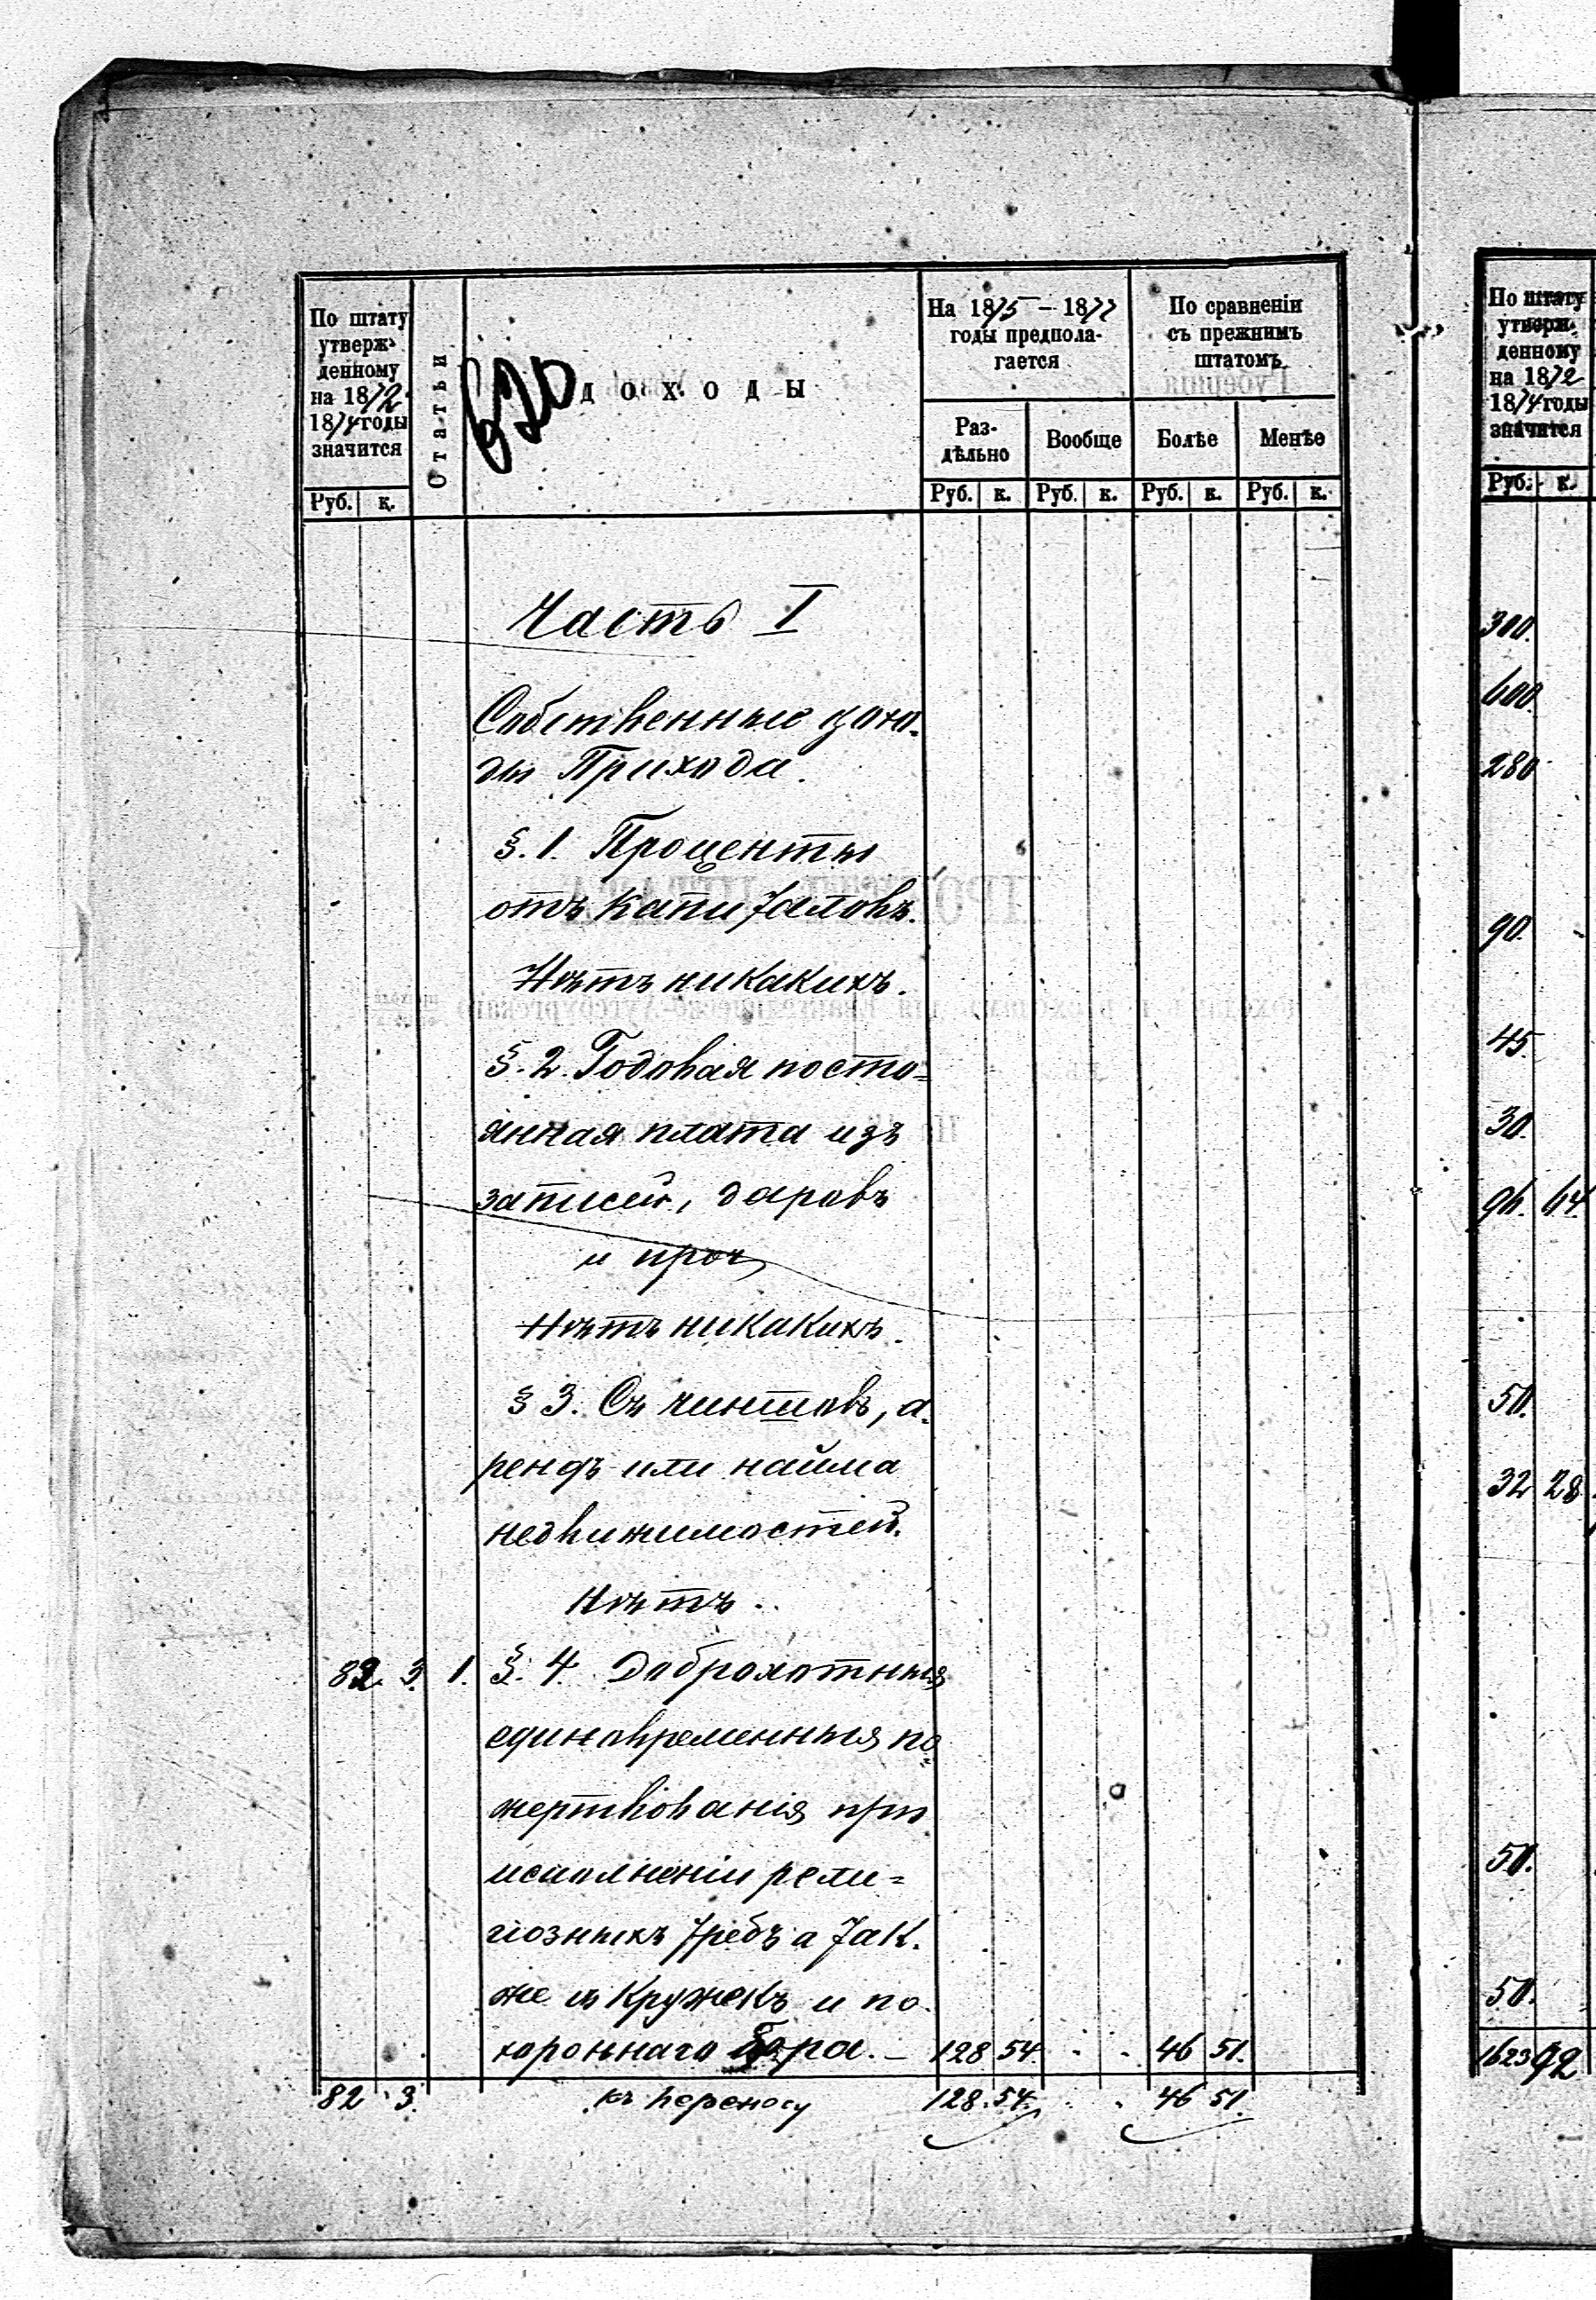 По штату утверж-денному на 1872 1874 годы значится
Руб. к.
Статьи
620
ДОХОДЫ
На 1875 – 1877
годы предпола-
гается
Раз-
дѣльно
Вообще
Руб. к. Руб. к.
По сравненіи
съ прежнимъ
штатомъ
Болѣе
Менѣе
Руб. к. Руб. к.
Часть I
Собственные дохо-
ды Прихода.
§. 1. Проценты
отъ капиталовъ.
Нѣтъ никакихъ.
§. 2. Годовая посто=
янная плата изъ
записей, даровъ
и проч,
Нѣтъ никакихъ.
§ 3. Съ чиншовъ, а-
рендъ или найма
недвижимостей.
Нѣтъ.
82. 3. 1. §. 4. Доброхотныя
единовременныя по=
жертвованія при
исполненіи рели=
гіозныхъ требъ а так-
же въ кружекъ и по-
хороннаго сбора. – 128 54. 46 51.
82 3. къ переносу 128. 54. 46 51.
По штату
утверж-
денному
на 1872
1874 годы
значится
Руб. к.
300.
600.
280
90.
45.
30.
96. 64
50.
32 28
50.
50.
1623 92